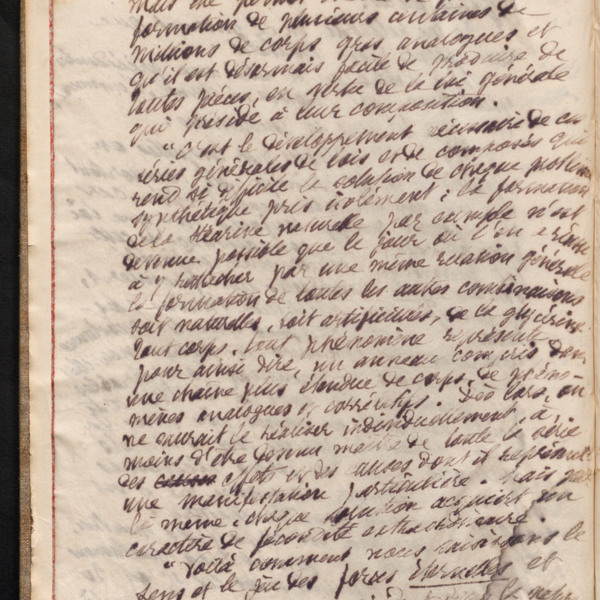 mais elle permet
formation de plusieurs centaines de
millions de corps gras analogues et
qu'il est désormais facile de produire de
toutes pièces, en vertu de la loi générale
qui préside à leur composition.
"C'est le développement nécessaire de ces
séries générales de lois et de composés qui
rend si difficile la solution de chaque problème
synthétique pris isolément : la formation
de la stéarine naturelle par exemple n'est
devenue possible que le jour où l'on a réussi
à y rattacher par une même relation générale
la formation de toutes les autres combinaisons
soit naturelles, soit artificielles, de la glycérine.
Tout corps, tout phénomène représente
pour ainsi dire, un anneau compris dans
une chaîne plus étendue de corps, de phéno-
mènes analogues et corrélatifs. Dès lors, on
ne saurait le réaliser individuellement, à
moins d'être devenu maître de toute la série
des effets et des causes dont il représente
une manifestation particulière. Mais par
là même, chaque solution acquiert un
caractère de fécondité extraordinaire.
"Voilà comment nous saisissons le
sens et le jeu des forces éternelles et